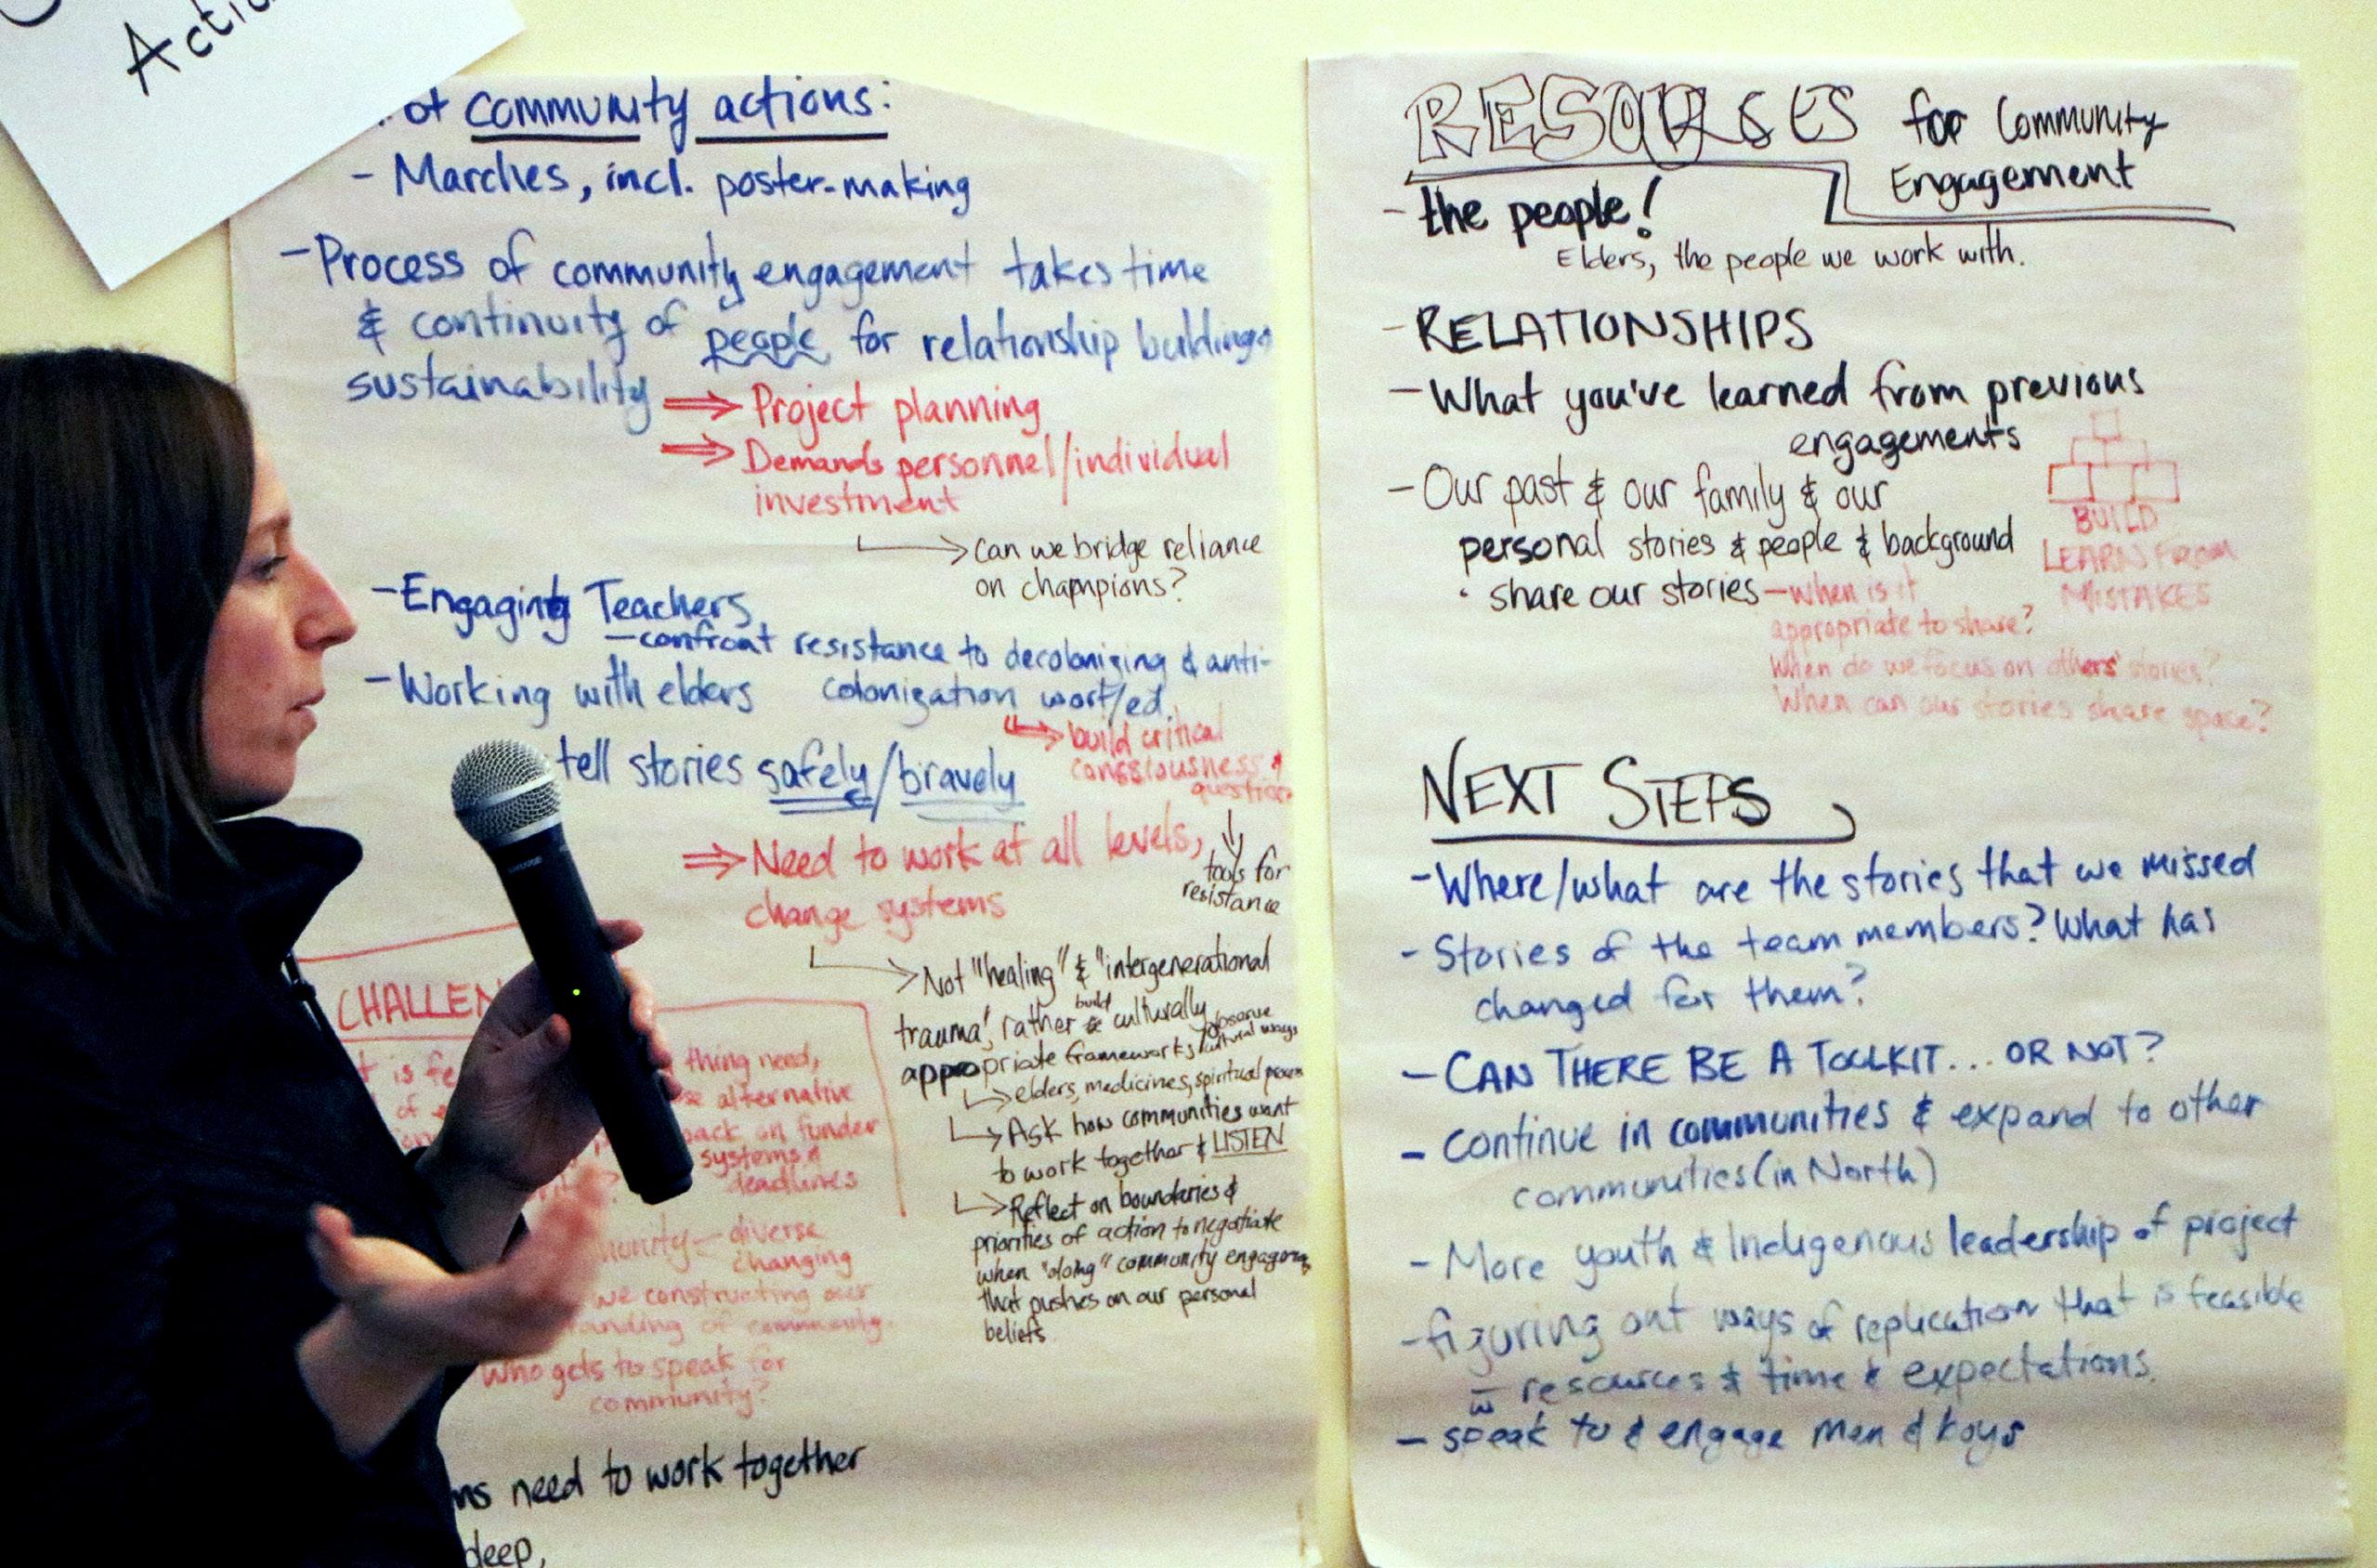 Actio
of community actions:
- Marches, incl. poster-making
- Process of community engagement takes time
& continuity of people for relationship building
sustainability
⇒ Project planning
⇒ Demands personnel/individual
investment
→ Can we bridge reliance
on champions?
- Engaging Teachers
- confront resistance to decolonizing & anti-
colonization work/ed.
- Working with elders
→ build critical
conssiousness &
question
↓
tools for
resistance
tell stories safely/bravely
⇒ Need to work at all levels,
change systems
→ Not "healing" & "intergenerational
trauma", rather build culturally
appropriate frameworks/observe
cultural ways
→ elders, medicines, spiritual
→ Ask how communities want
to work together & LISTEN
→ Reflect on boundaries &
priorities of action to negotiate
when "doing" community engaging
that pushes on our personal
beliefs
CHALLEN
is
thing need,
of
alternative
back on funder
systems &
deadlines
munity - diverse
changing
we constructing our
anding of community.
Who gets to speak for
community?
ns need to work together
deep,
RESOURSES for Community
Engagement
- the people!
Elders, the people we work with.
- RELATIONSHIPS
- What you've learned from previous
engagements
- Our past & our family & our
personal stories & people & background
· share our stories - when is it
appropriate to share?
When do we focus on others' stories?
When can our stories share space?
BUILD
LEARNS FROM
MISTAKES
NEXT STEPS
- Where/what are the stories that we missed
- Stories of the team members? What has
changed for them?
- CAN THERE BE A TOOLKIT... OR NOT?
- Continue in communities & expand to other
communities (in North)
- More youth & Indigenous leadership of project
- figuring out ways of replication that is feasible
w̄ resources & time & expectations.
- speak to & engage men & boys